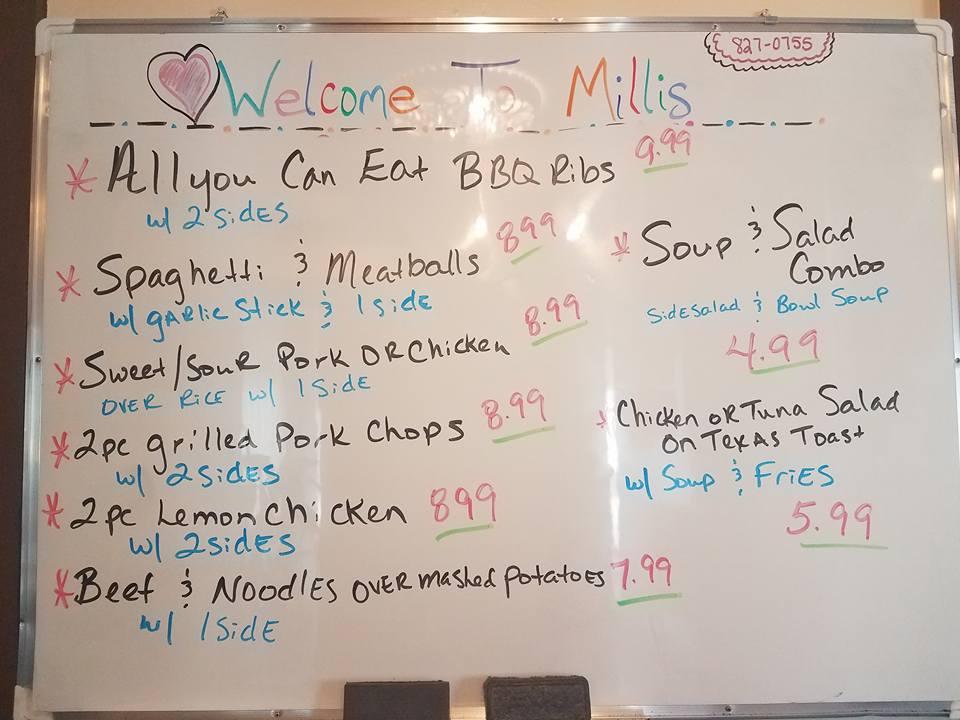 827-0755
Welcome To Millis
* All you Can Eat BBQ Ribs 9.99
w/ 2 sides
* Spaghetti & Meatballs 899
w/ garlic stick & 1 side
* Sweet/Sour Pork OR Chicken 8.99
over rice w/ 1 side
* 2pc grilled Pork Chops 8.99
w/ 2 sides
* 2pc Lemon Chicken 899
w/ 2 sides
* Beef & Noodles over mashed potatoes 7.99
w/ 1 side
* Soup & Salad
Combo
side salad & Bowl Soup
4.99
* Chicken or Tuna Salad
on Texas Toast
w/ Soup & Fries
5.99